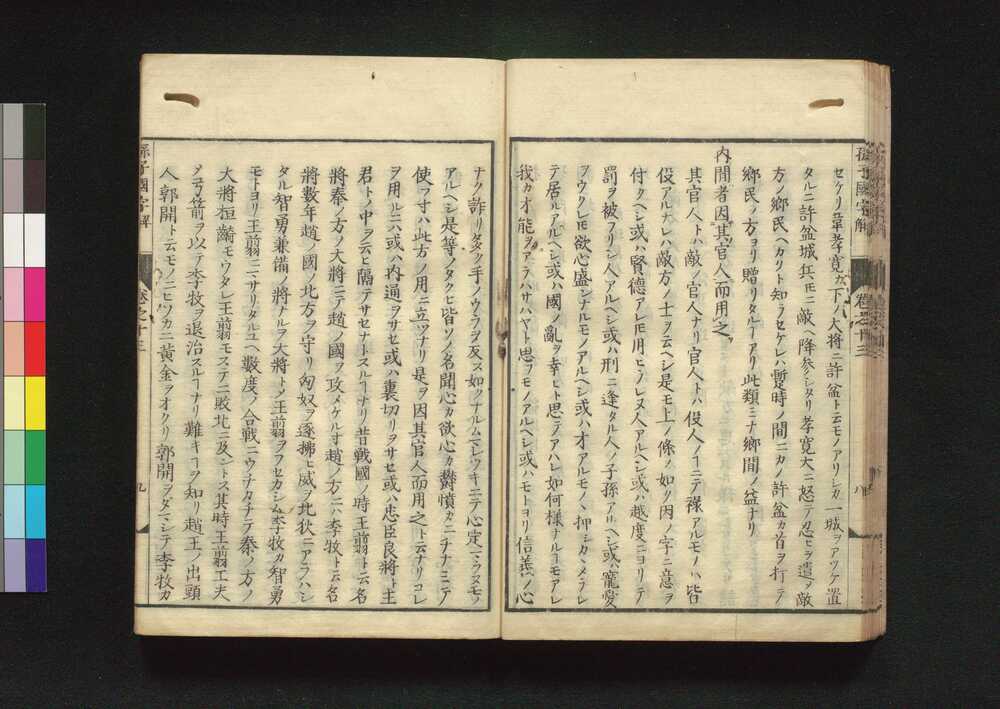 孫子國字解 卷之十三 八
セケリ韋孝寛カ下ノ大将ニ許盆ト云モノアリシカ一城ヲアツケ置
タルニ許盆城兵𪜈ニ敵ヘ降参シタリ孝寛大ニ怒テ忍ヒヲ遣ヲ敵
方ノ鄉民ヘカリト知ラセケレハ暫時ノ間ニカノ許盆カ首ヲ打テ
鄉民ノ方ヨリ贈リタルヿアリ此類ミナ鄉間ノ益ナリ
内間者因其官人而用之
其官人トハ敵ノ官人ナリ官人トハ役人ノヿニテ祿アルモノハ皆
役アルナレハ敵方ノ士ヲ云ヘシ是モ上ノ條ノ如ク因ノ字ニ意ヲ
付クヘシ或ハ賢德アレ𪜈用ヒラレヌ人アルヘシ或ハ越度ニヨリテ
罰ヲ被フリシ人アルヘシ或ハ刑ニ逢タル人ノ子孫アルヘシ或ハ寵愛
ヲウクレ𪜈欲心盛ンナルモノアルヘシ或ハ才アルモノヽ押シカスメラレ
テ居ルアルヘシ或ハ國ノ亂ヲ幸ヒト思テアハレ如何樣ナルヿモアレ
我カオ能ヲアラハサハヤト思フモノアルヘシ或ハモトヨリ信義ノ心
ナク詐リタクミ手ノウラヲ反ス如クナルムマレツキニテ心定マラヌモノ
アルヘシ是等ノタクヒ皆ソノ名聞心カ欲心カ欝憤カニチナミニテ
使フ寸ハ此方ノ用ニ立ツナリ是ヲ因其官人而用之ト云ナリコレ
ヲ用ルニハ或ハ内通ヲサセ或ハ裏切リヲサセ或ハ忠臣良將ト主
君トノ中ヲ云ヒ隔テサセナトスルヿナリ昔戰國ノ時王翦ト云名
將秦ノ方ノ大將ニテ趙ノ國ヲ攻メケル寸趙ノ方ニハ李牧ト云名
將數年趙ノ國ノ北方ヲ守リ匈奴ヲ逐拂ヒ威ヲ北狄ニアラハシ
タル智勇兼備ノ將ナルヲ大將トメ王翦ヲフセカシム李牧カ智勇
モトヨリ王翦ニマサリタルユヘ數度ノ合戰ニウチカチテ秦ノ方ノ
大將桓齮モウタレ王翦モステニ敗北ニ及ントス其時王翦工夫
メ弓箭ヲ以テ李牧ヲ退治スルヿナリ難キヿヲ知リ趙王ノ出頭
人郭開ト云モノニヒソカニ黄金ヲオクリ郭開ヲダマシテ李牧カ
孫子國字解 卷之十三 九